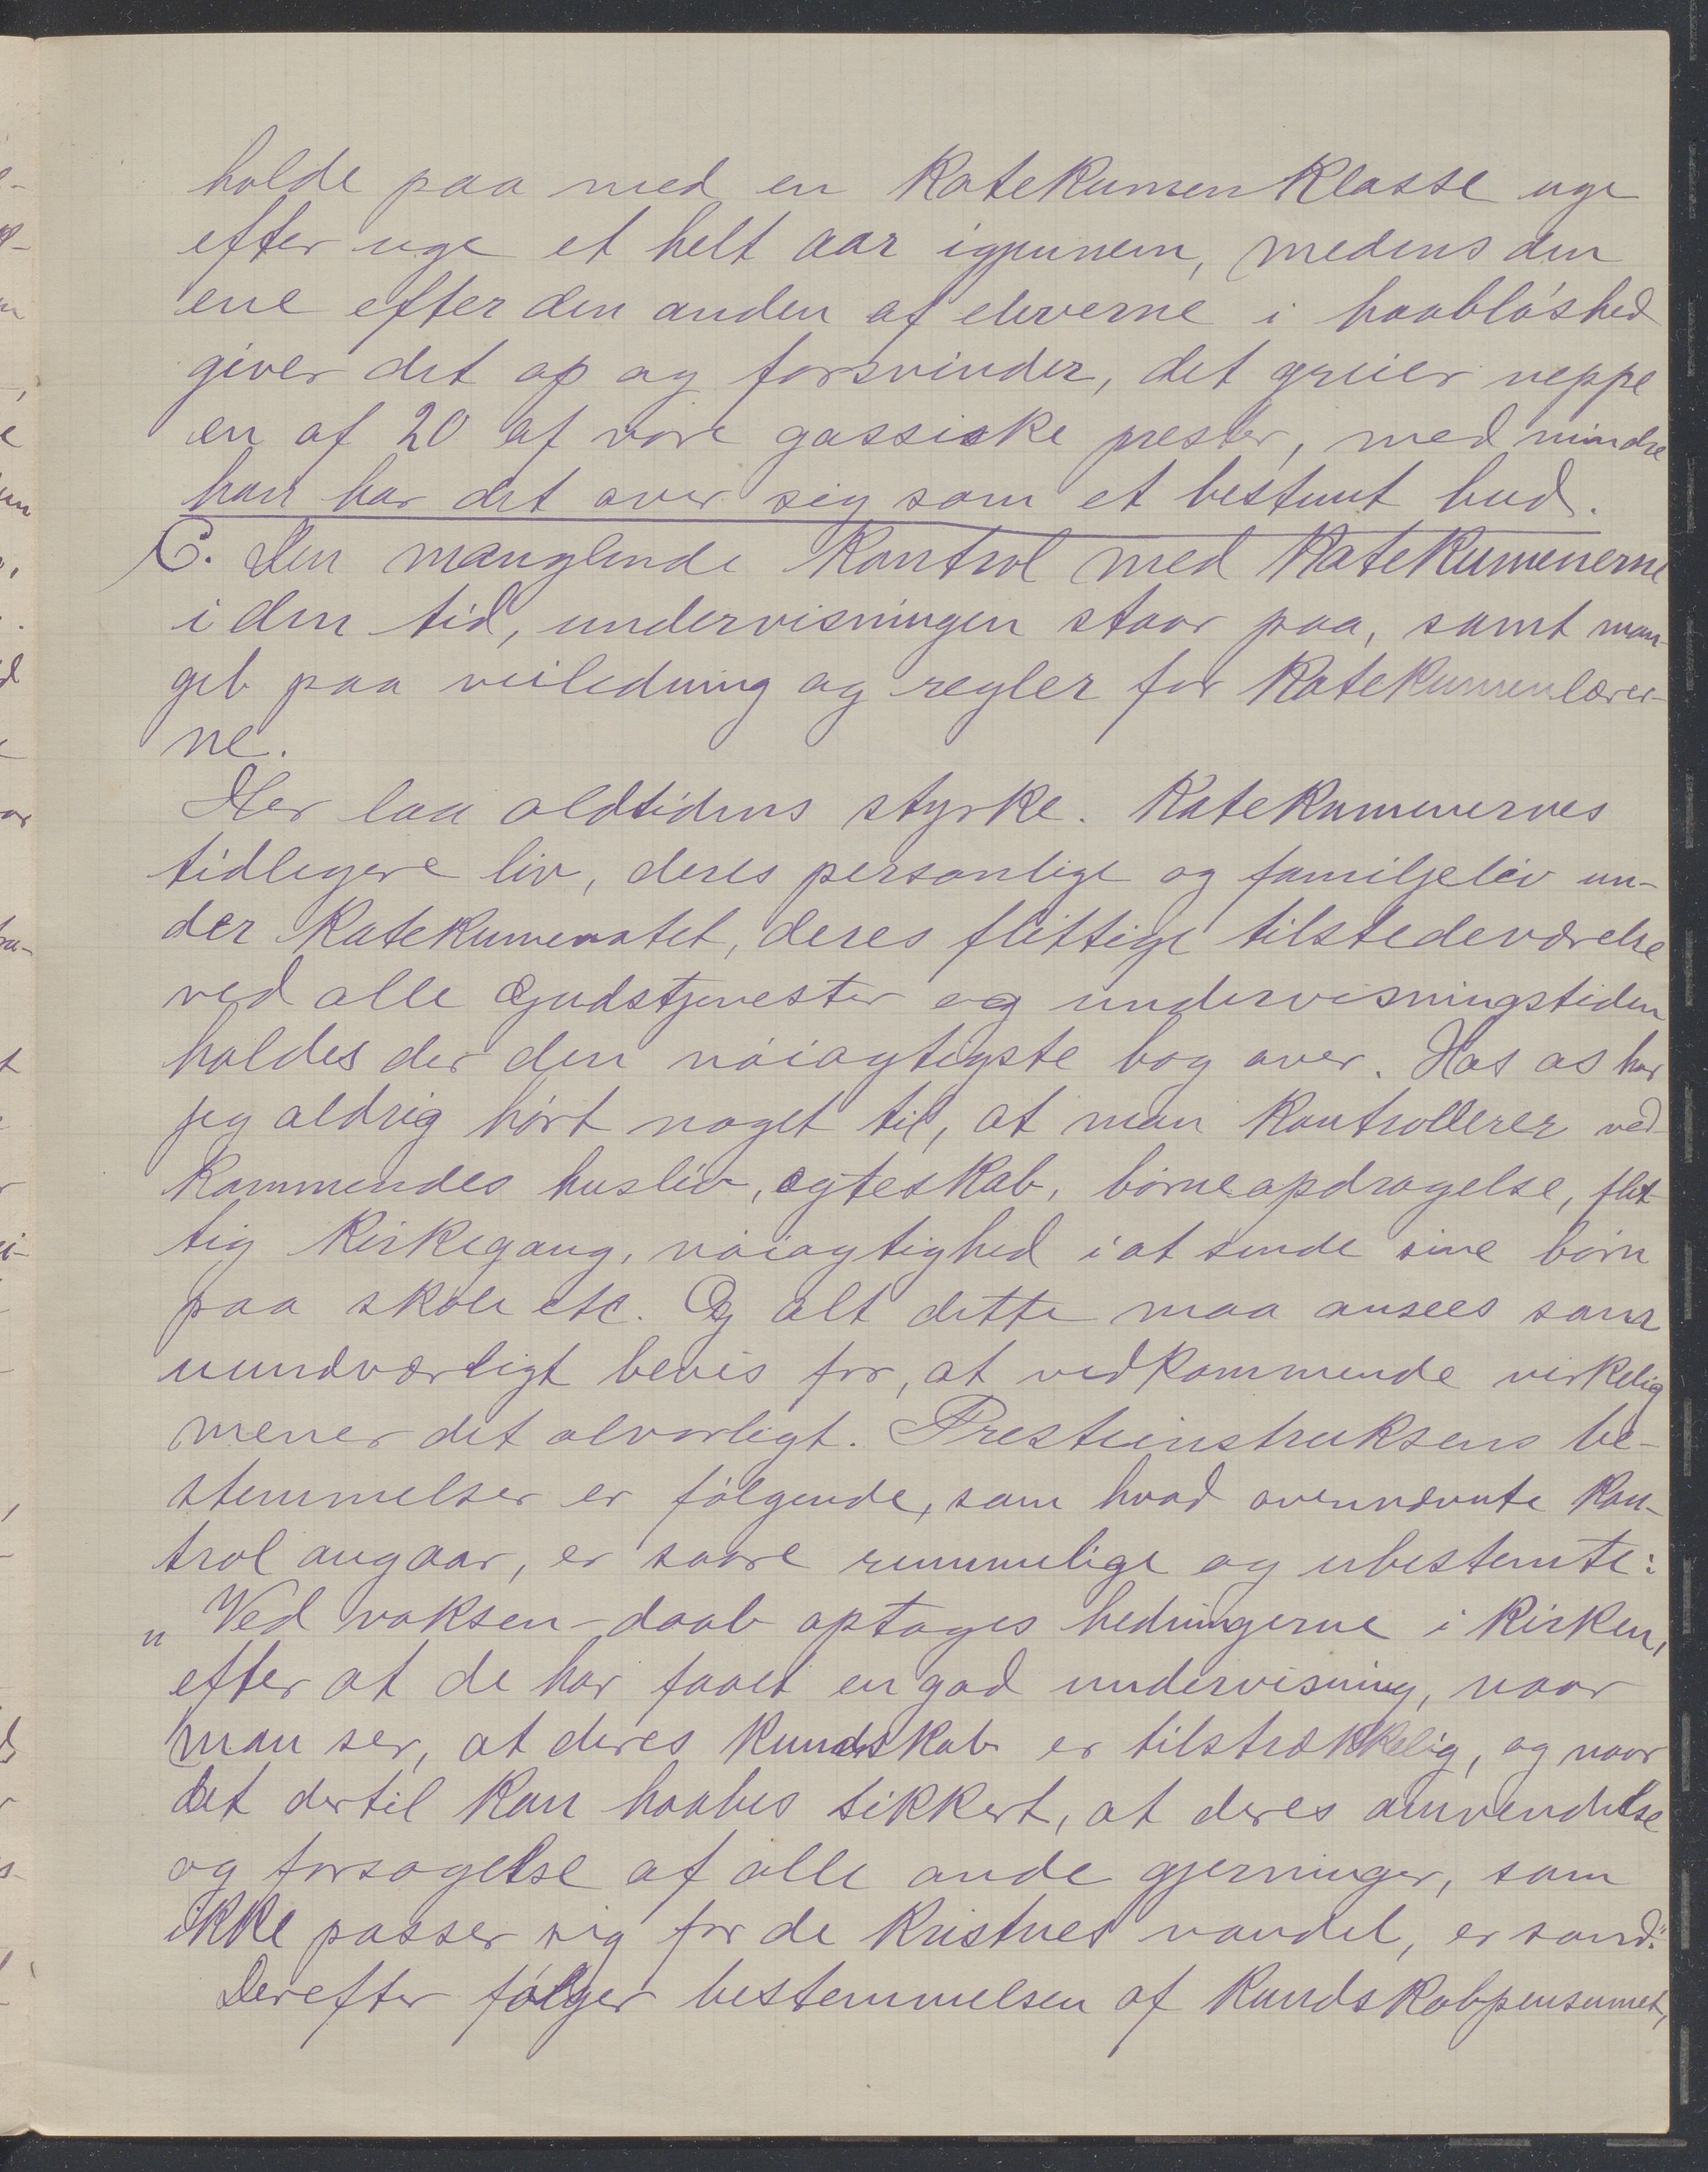 holde paa med en Katekumenklasse uge
efter uge et helt aar igjennem, medens den
ene efter den anden af eleverne i haabløshed
giver det op og forsvinder, det greier neppe
en af 20 af vore gassiske prester, med mindre
han har det over sig som et bestemt bud.
C. Den manglende Kontrol med Katekumenerne
i den tid, undervisningen staar paa, samt man-
gel paa veiledning og regler for Katekumenlærer-
ne.
Her laa oldtidens styrke. Katekumenernes
tidligere liv, deres personlige og familjeliv un-
der Katekumenatet, deres flittige tilstedeværelse
ved alle Gudstjenester og undervisningstiden
holdes der den nøiagtigste bog over. Hos os har
jeg aldrig hørt noget til, at man Kontrollerer ved-
kommendes husliv, egteskab, børneopdragelse, flit-
tig Kirkegang, nøiagtighed i at sende sine børn
paa skole etc. Og alt dette maa ansees som
uundværligt bevis for, at vedkommende virkelig
mener det alvorligt. Presteinstruksens be-
stemmelser er følgende, som hvad ovennævnte Kon-
trol angaar, er saare rummelige og ubestemte:
„Ved voksen-daab optages hedningerne i Kirken,
efter at de har faaet en god undervisning, naar
man ser, at deres Kundskab er tilstrækkelig, og naar
det dertil kan haabes sikkert, at deres omvendelse
og forsagelse af alle onde gjerninger, som
ikke passer sig for de Kristnes vandel, er sand."
Derefter følger bestemmelsen af Kundskabpensumet,